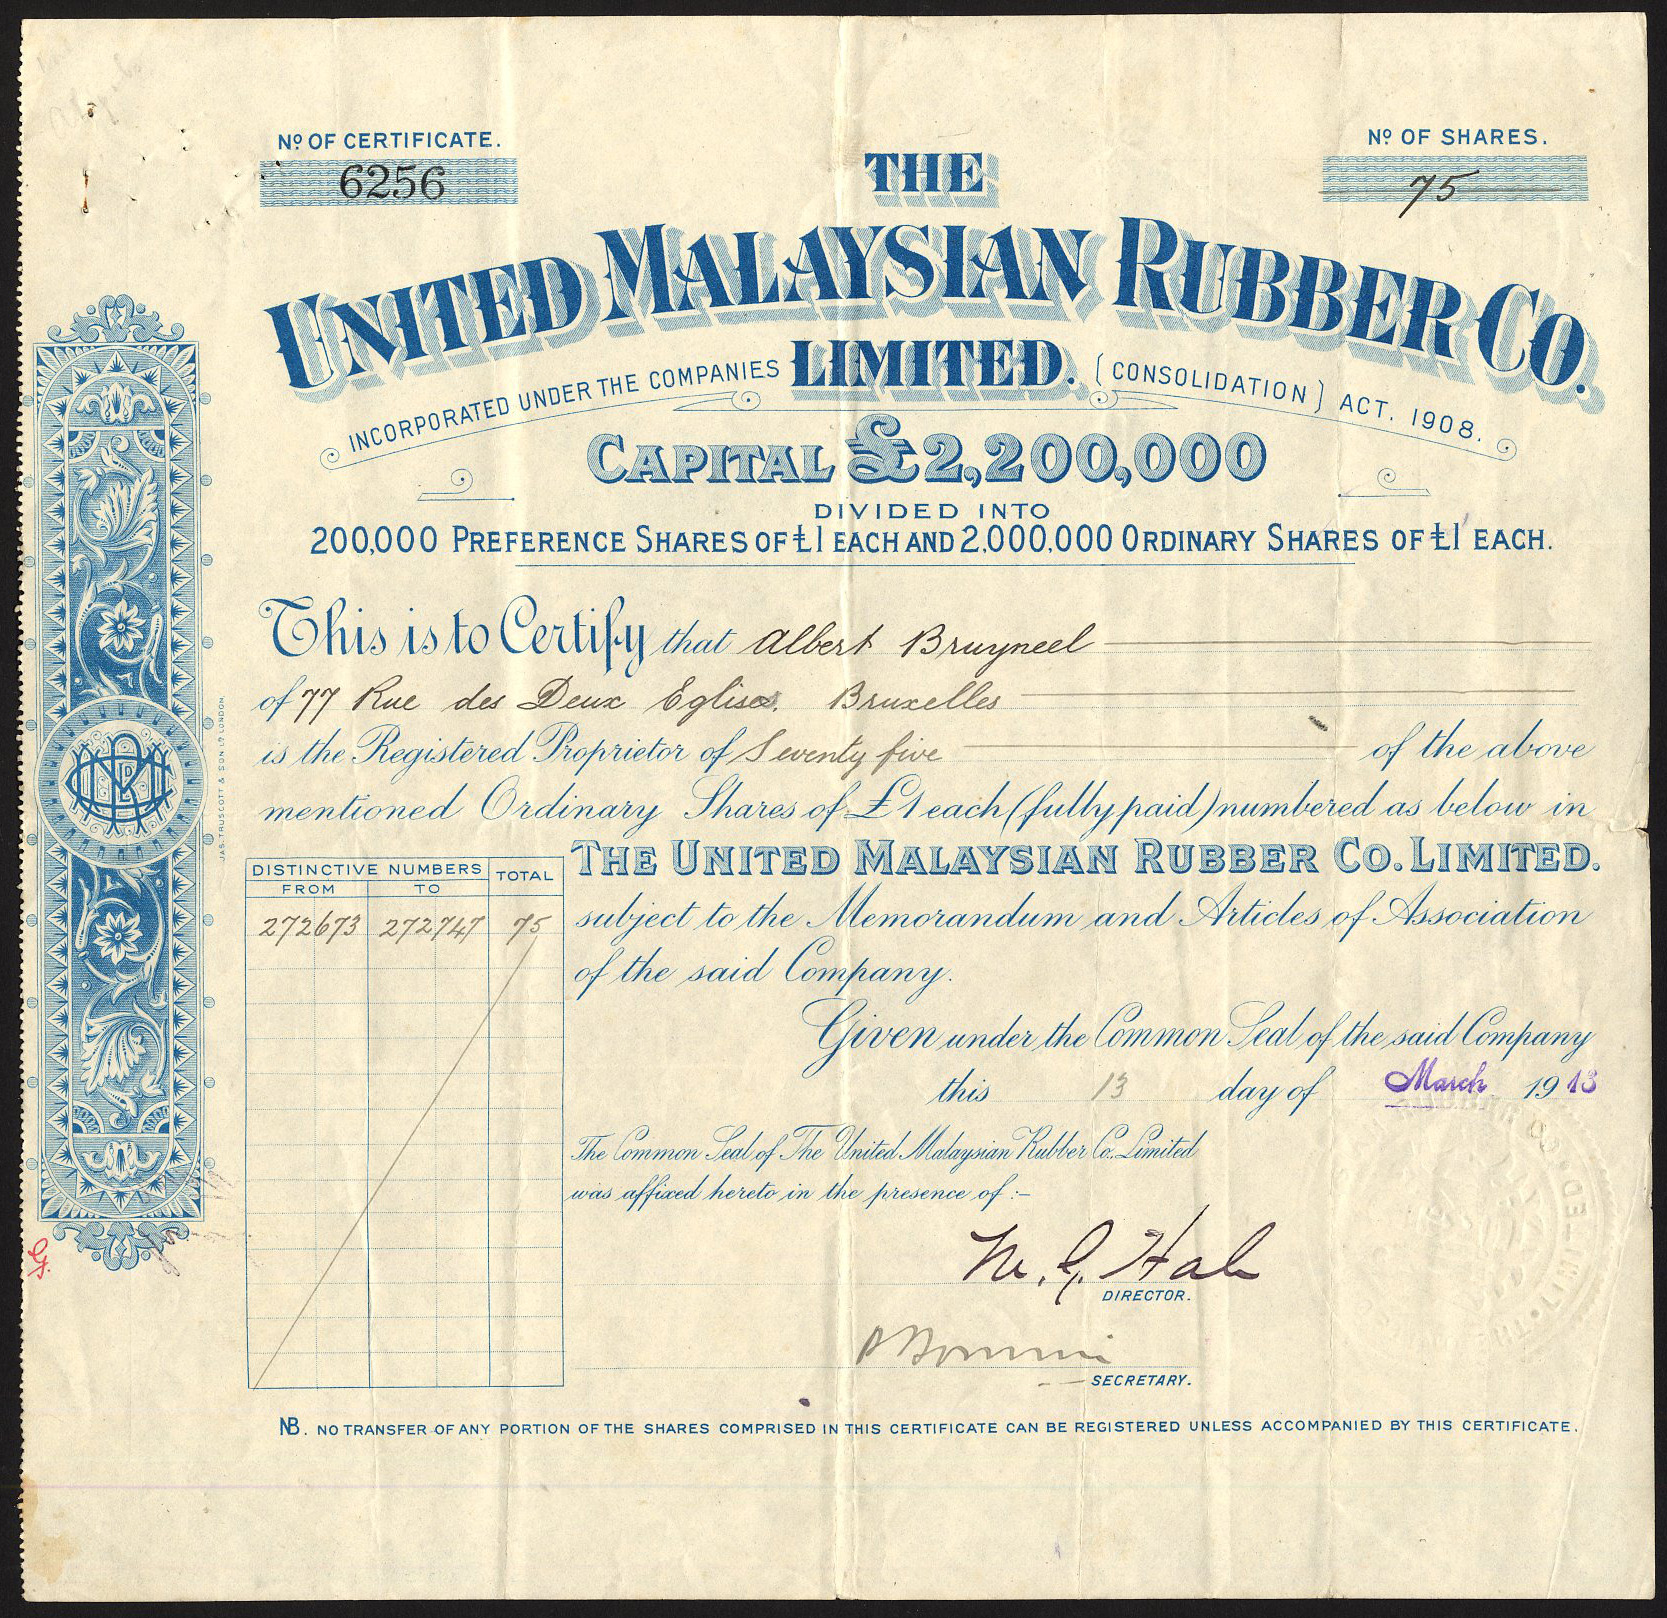 Nº OF CERTIFICATE.
6256
Nº OF SHARES.
75
THE
UNITED MALAYSIAN RUBBER CO.
LIMITED.
INCORPORATED UNDER THE COMPANIES (CONSOLIDATION) ACT. 1908.
CAPITAL £2,200,000
DIVIDED INTO
200,000 PREFERENCE SHARES OF £1 EACH AND 2,000,000 ORDINARY SHARES OF £1 EACH.
This is to Certify that Albert Bruyneel
of 77 Rue des Deux Eglises. Bruxelles
is the Registered Proprietor of Seventy five of the above
mentioned Ordinary Shares of £1 each (fully paid) numbered as below in
THE UNITED MALAYSIAN RUBBER CO. LIMITED.
subject to the Memorandum and Articles of Association
of the said Company.
DISTINCTIVE NUMBERS TOTAL
FROM TO
272673 272747 75
Given under the Common Seal of the said Company
this 13 day of March 1913
The Common Seal of The United Malaysian Rubber Co. Limited
was affixed hereto in the presence of :-
DIRECTOR.
SECRETARY.
NB. NO TRANSFER OF ANY PORTION OF THE SHARES COMPRISED IN THIS CERTIFICATE CAN BE REGISTERED UNLESS ACCOMPANIED BY THIS CERTIFICATE.
JAS. TRUSCOTT & SON, LD LONDON.